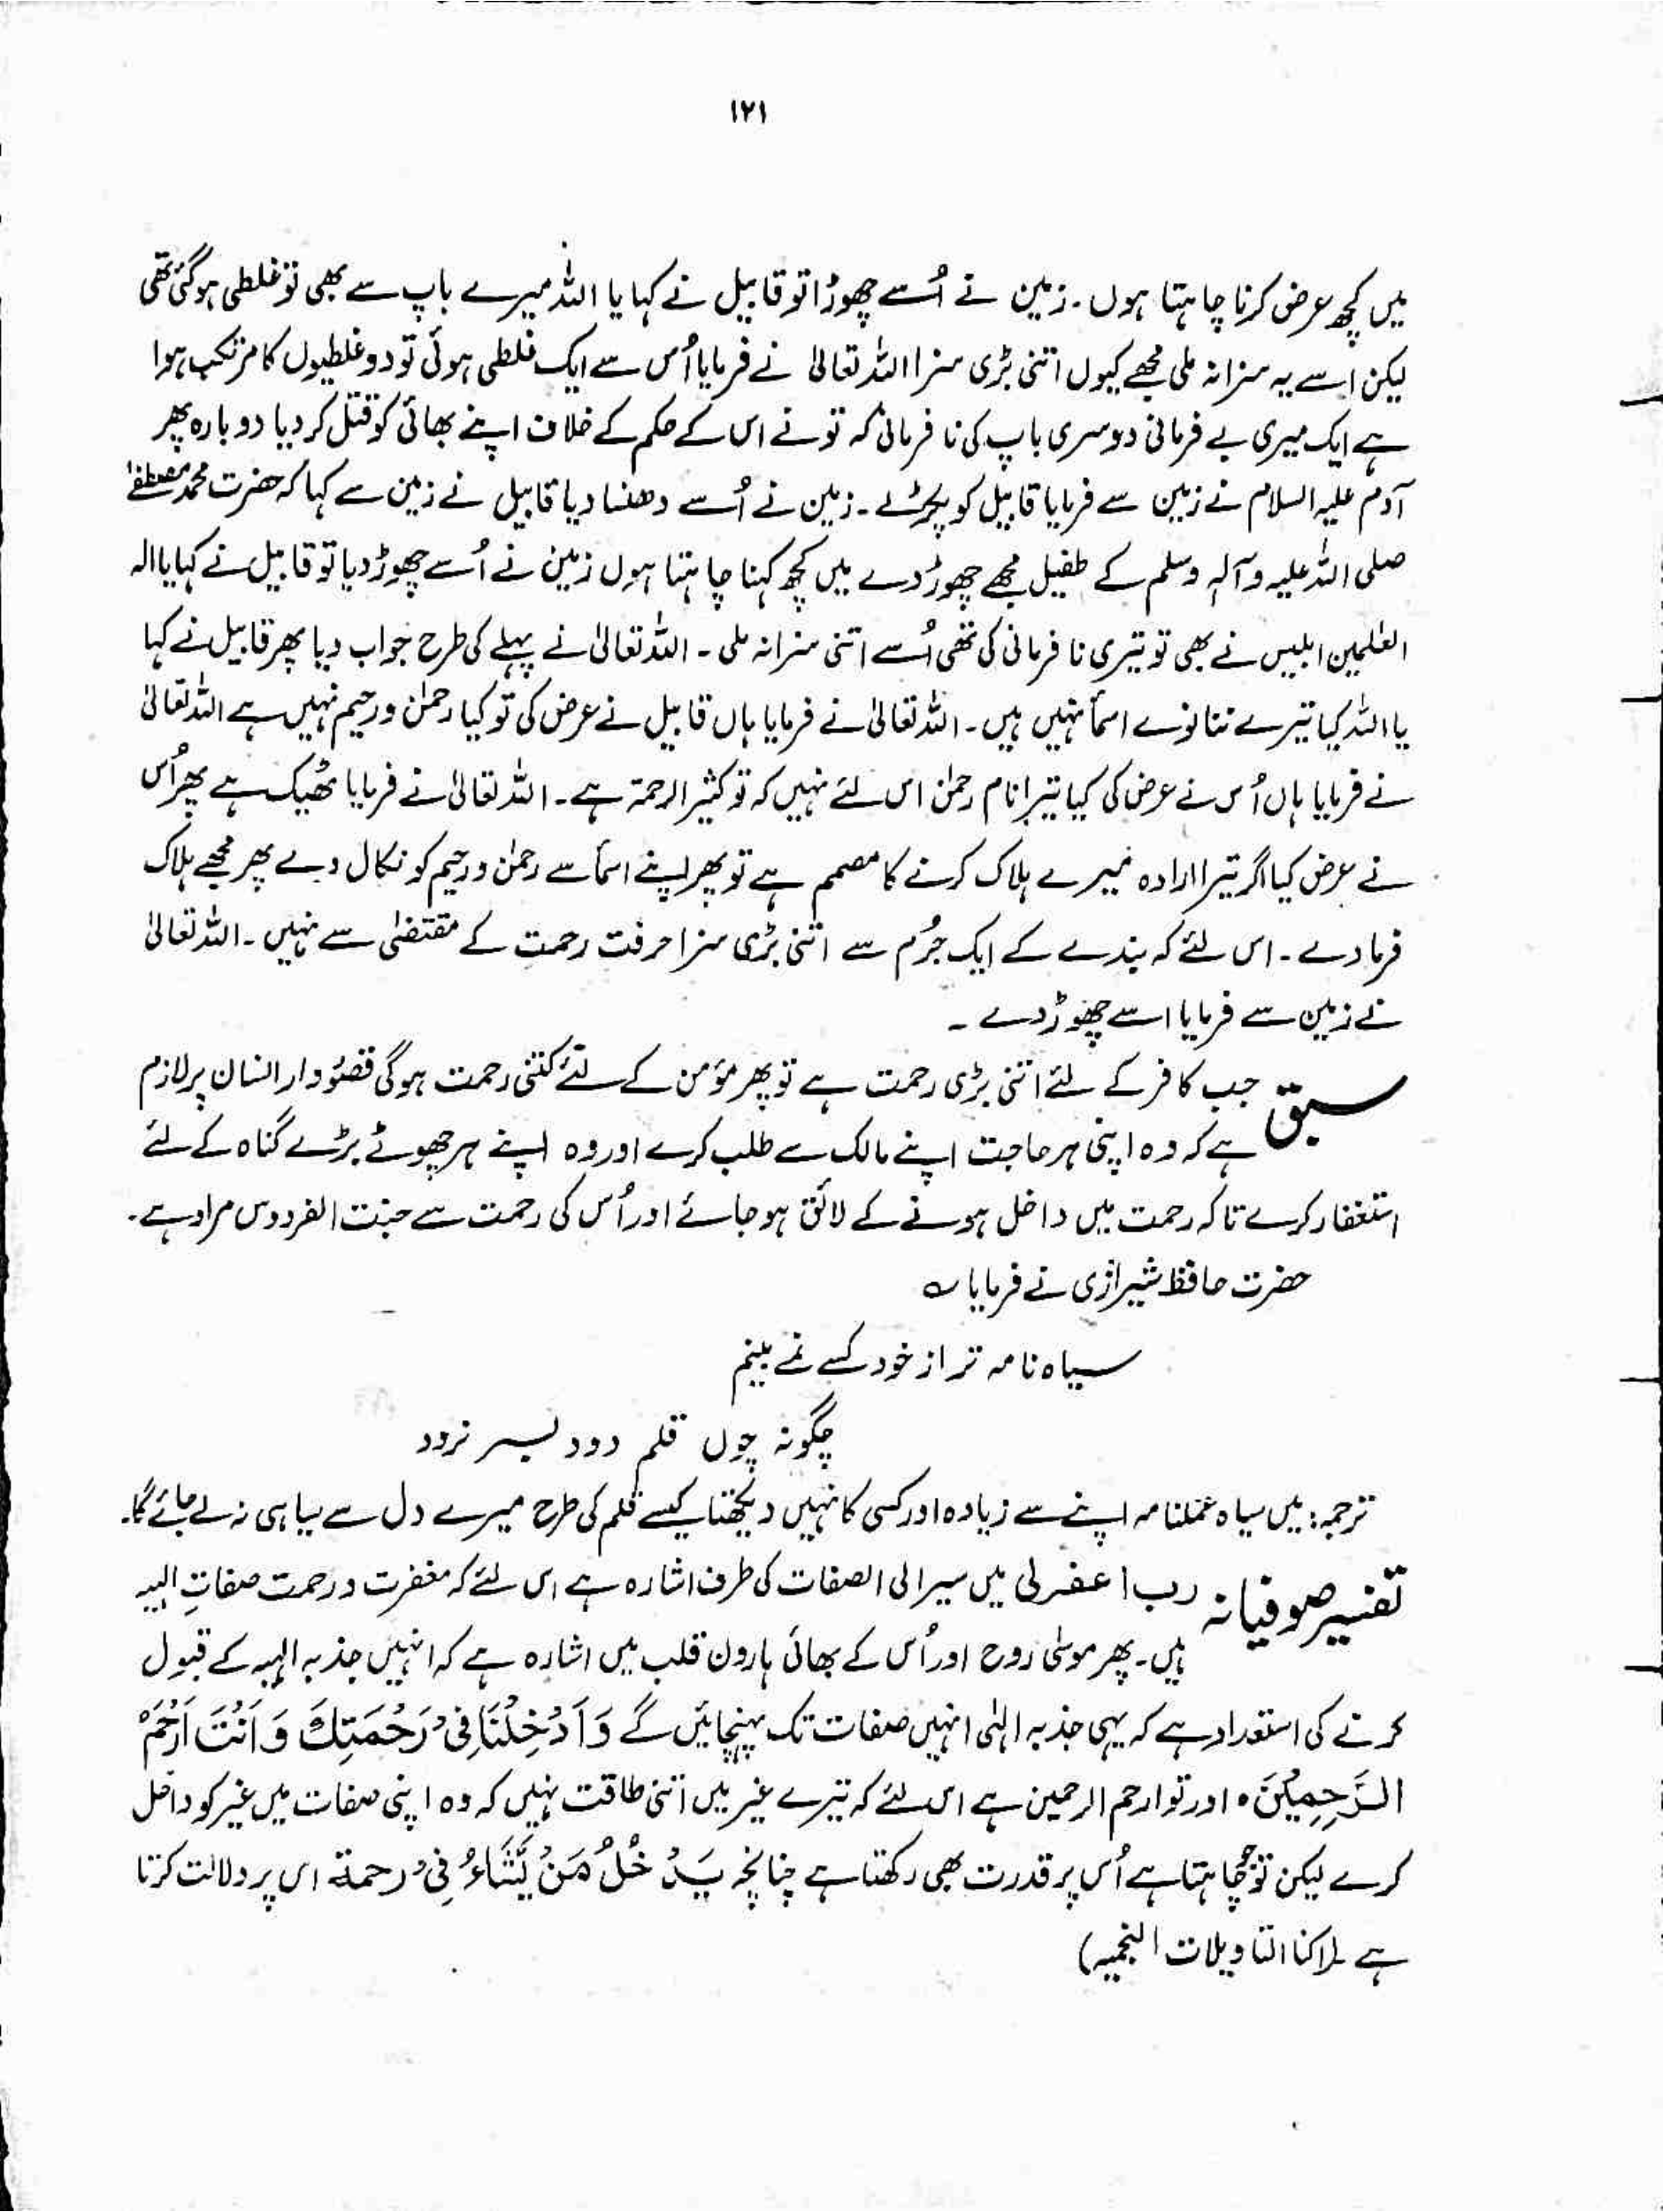 ۱۲۱
میں کچھ عرض کرنا چاہتا ہوں۔ زمین نے اُسے چھوڑا تو قابیل نے کہا یا اللہ میرے باپ سے بھی تو غلطی ہوگئی تھی
لیکن اسے یہ سزا نہ ملی مجھے کیوں اتنی بڑی سزا اللہ تعالیٰ نے فرمایا اُس سے ایک غلطی ہوئی تو دو غلطیوں کا مرتکب ہوا
ہے ایک میری بے فرمانی دوسری باپ کی نافرمانی کہ تو نے اس کے حکم کے خلاف اپنے بھائی کو قتل کر دیا دوبارہ پھر
آدم علیہ السلام نے زمین سے فرمایا قابیل کو پکڑلے۔ زمین نے اُسے دھنسا دیا قابیل نے زمین سے کہا کہ حضرت محمد مصطفےٰ
صلی اللہ علیہ وآلہٖ وسلم کے طفیل مجھے چھوڑ دے میں کچھ کہنا چاہتا ہوں زمین نے اُسے چھوڑ دیا تو قابیل نے کہا یا الہ
العٰلمین ابلیس نے بھی تو تیری نافرمانی کی تھی اُسے اتنی سزا نہ ملی۔ اللہ تعالیٰ نے پہلے کی طرح جواب دیا پھر قابیل نے کہا
یا اللہ کیا تیرے ننانوے اسمأ نہیں ہیں۔ اللہ تعالیٰ نے فرمایا ہاں قابیل نے عرض کی تو کیا رحمٰن و رحیم نہیں ہے اللہ تعالیٰ
نے فرمایا ہاں اُس نے عرض کی کیا تیرا نام رحمٰن اس لئے نہیں کہ تو کثیر الرحمۃ ہے۔ اللہ تعالیٰ نے فرمایا ٹھیک ہے پھر اُس
نے عرض کیا اگر تیرا ارادہ میرے ہلاک کرنے کا مصمم ہے تو پھر اپنے اسمأ سے رحمٰن و رحیم کو نکال دے پھر مجھے ہلاک
فرما دے۔ اس لئے کہ بندے کے ایک جُرم سے اتنی بڑی سزا حرفت رحمت کے مقتضیٰ سے نہیں۔ اللہ تعالیٰ
نے زمین سے فرمایا اسے چھوڑ دے۔
سبق جب کافر کے لئے اتنی بڑی رحمت ہے تو پھر مؤمن کے لئے کتنی رحمت ہوگی قصوُوار انسان پر لازم
ہے کہ وہ اپنی ہر حاجت اپنے مالک سے طلب کرے اور وہ اپنے ہر چھوٹے بڑے گناہ کے لئے
استغفار کرے تاکہ رحمت میں داخل ہونے کے لائق ہو جائے اور اُس کی رحمت سے جنت الفردوس مراد ہے۔
حضرت حافظ شیرازی نے فرمایا ؎
سیاہ نامہ تر از خود کسے نمے بینم
چگونہ چوں قلم دود بسر نرود
ترجمہ: میں سیاہ عملنامہ اپنے سے زیادہ اور کسی کا نہیں دیکھتا کیسے قلم کی طرح میرے دل سے سیاہی نہ لے جائے گا۔
تفسیر صوفیانہ رب اغفرلی میں سیر الی الصفات کی طرف اشارہ ہے اس لئے کہ مغفرت و رحمت صفاتِ الہیہ
ہیں۔ پھر موسٰی روح اور اُس کے بھائی ہارون قلب میں اشارہ ہے کہ انہیں جذبہ الہیہ کے قبول
کرنے کی استعداد ہے کہ یہی جذبہ الٰہی انہیں صفات تک پہنچائیں گے وَاَدْخِلْنَا فِیْ رَحْمَتِكَ وَ اَنْتَ اَرْحَمُ
الرَّحِمِیْنَ ہ اور تو ارحم الرحمین ہے اس لئے کہ تیرے غیر میں اتنی طاقت نہیں کہ وہ اپنی صفات میں غیر کو داخل
کرے لیکن تو جو چاہتا ہے اُس پر قدرت بھی رکھتا ہے چنانچہ یَدْخُلُ مَنْ یَّشَاءُ فِیْ رحمۃ اس پر دلالت کرتا
ہے (کذا التاویلات النجمیہ)